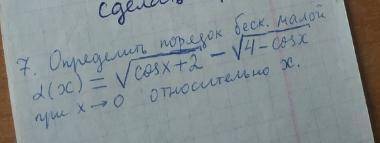 сделать
7. Определить порядок беск. малой
α(x) = √(cosx+2) − √(4−cosx)
при x → 0 относительно x.